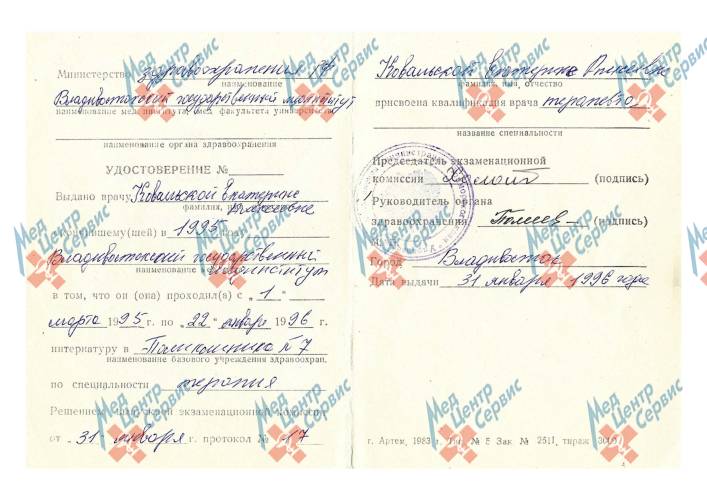 Министерство здравоохранения РФ
наименование
Владивостокский государственный мединститут
наименование мединститута, мед. факультета университета
наименование органа здравоохранения
УДОСТОВЕРЕНИЕ №
Выдано врачу Ковальской Екатерине
Алексеевне
фамилия, имя
окончившему(шей) в 1995 году
Владивостокский государственный
мединститут
наименование
в том, что он (она) проходил(а) с „1“
марта 1995 г. по „22“ января 1996 г.
интернатуру в Поликлиника № 7
наименование базового учреждения здравоохран.
по специальности терапия
Решением экзаменационной комиссии
от „31“ января г. протокол № 17
Ковальской Екатерине Алексеевне
фамилия, имя, отчество
присвоена квалификация врача терапевта
название специальности
Председатель экзаменационной
комиссии (подпись)
Руководитель органа
здравоохранения (подпись)
Город Владивосток
Дата выдачи 31 января 1996 года
г. Артем, 1983 г. Тип. № 5 Зак № 2511, тираж 3000
Мед Центр Сервис